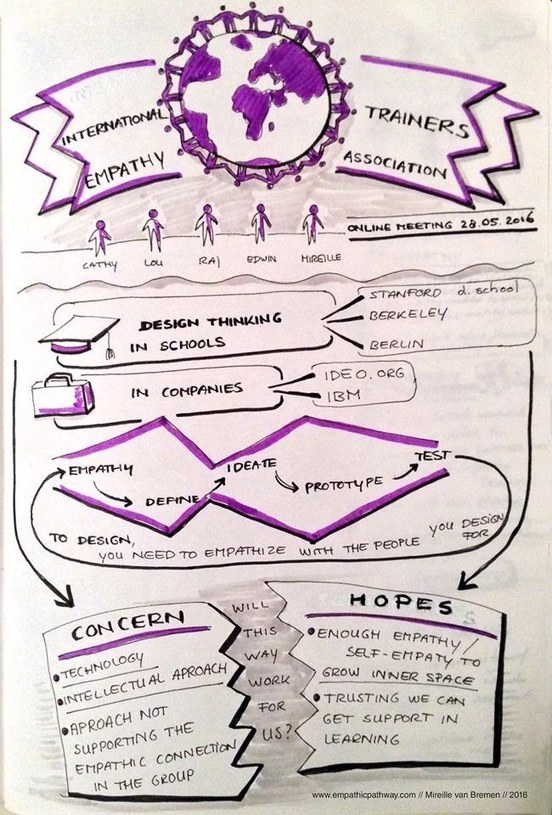 INTERNATIONAL
EMPATHY
TRAINERS
ASSOCIATION
ONLINE MEETING 28.05.2016
CATHY LOU RAJ EDWIN MIREILLE
DESIGN THINKING
IN SCHOOLS
STANFORD d.school
BERKELEY
BERLIN
IN COMPANIES
IDEO.ORG
IBM
EMPATHY
DEFINE
IDEATE
PROTOTYPE
TEST
TO DESIGN,
YOU NEED TO EMPATHIZE WITH THE PEOPLE YOU DESIGN
FOR
CONCERN
• TECHNOLOGY
• INTELLECTUAL APROACH
• APROACH NOT
SUPPORTING THE
EMPATHIC CONNECTION
IN THE GROUP
WILL
THIS
WAY
WORK
FOR
US?
HOPES
• ENOUGH EMPATHY/
SELF-EMPATY TO
GROW INNER SPACE
• TRUSTING WE CAN
GET SUPPORT IN
LEARNING
www.empathicpathway.com // Mireille van Bremen // 2016